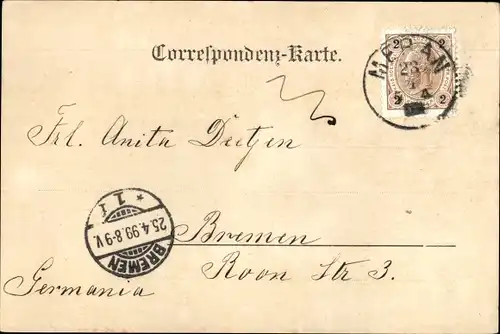 Correspondenz-Karte.
2 2
MERAN
23
4
2 2
Frl. Anita Dietjen
BREMEN
25.4.99.8-9V.
* 1 I
Bremen
Roon Str 3.
Germania